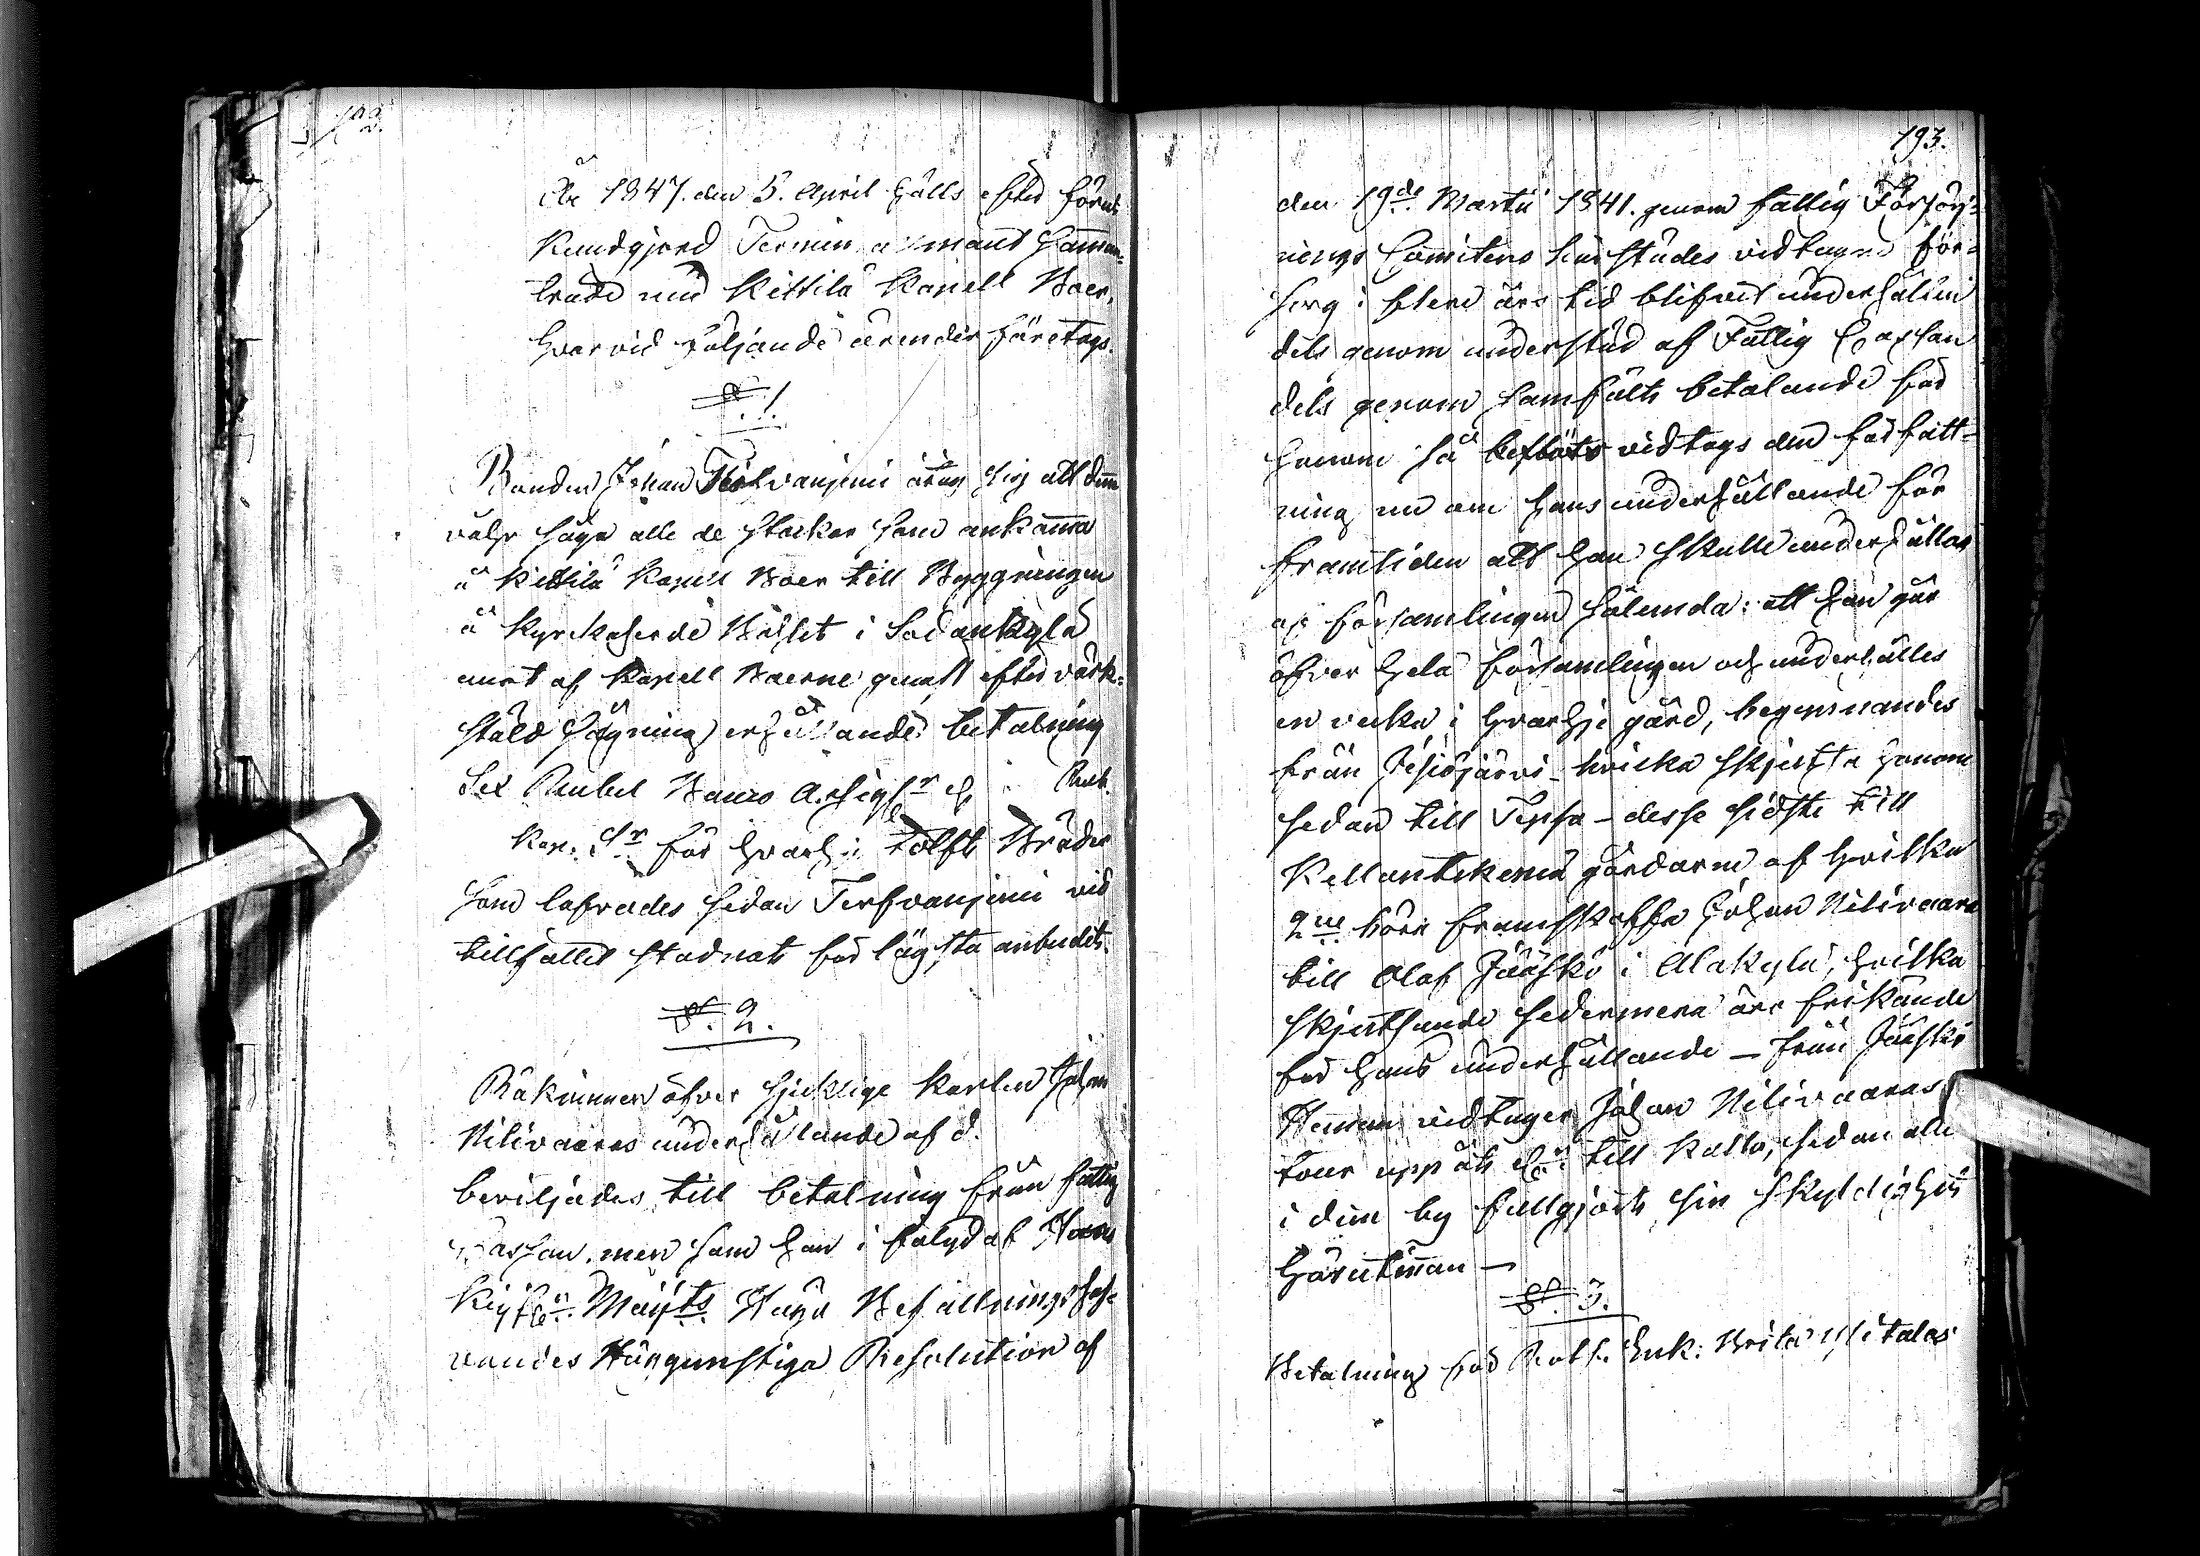 192.
År 1847. den 5. April hölls efter förut
kundgjord Termin allmänt Samman-
träde med Kittilä Kapell Boer,
hvarvid följande ärender företogs.
§. 1.
Bonden Johan åtog sig att den
såga alle de stockar som ankomma
å Kittilä Kapell Boer till Byggningen
å Kyrkoherde Bolet i Sodankylä
emot af Kapell Boerne genast efter värk-
stäld sågning erhållande betalning
Sex Rubel Banco Assign
Kop. Sr för hvarje Tolft Bräder
som lefvereras sedan vid
tillfället stadnat för lägsta anbudet.
§. 2.
Räkningen öfver sjuklige karlen Johan
Nilivaaras underhållande af d.
beviljades till betalning från fattig
Cassan, men som han i följd af Hans
Kejserl. Majts Höga Befallningshaf-
vandes Högunstiga Resolution af
193.
den 19de Martii 1841. genom fattig Försörj-
nings Comitens härstädes vidtagne för-
sorg i flere års tid blifvit underhållen
dels genom understöd af Fattig Cassan
dels genom samfält betalande för
honom så vidtogs den författ-
ning nu om hans underhållande för
framtiden att han skulle underhållas
af församlingen sålunda: att han går
öfver hela församlingen och underhålles
en vecka i hvarhje gård, begynnandes
från Jesiöjärvi - hvilka skjutsa honom
sedan till Tepsa - desse sidste till
gårdarne af hvilka
böra framskaffa Johan Nilivaara
till Olof Jääskö i Alakylä, hvilka
skjutsande sedermera äro frikände
för hans underhållande - från Jääskö
Hemman vidtager Johan Nilivaaras
tour uppåt till Kallo, sedan alle
i den by fullgjort sin skyldighet
härutinnan —
§. 3.
Betalning för Rotf. Enk: Brita